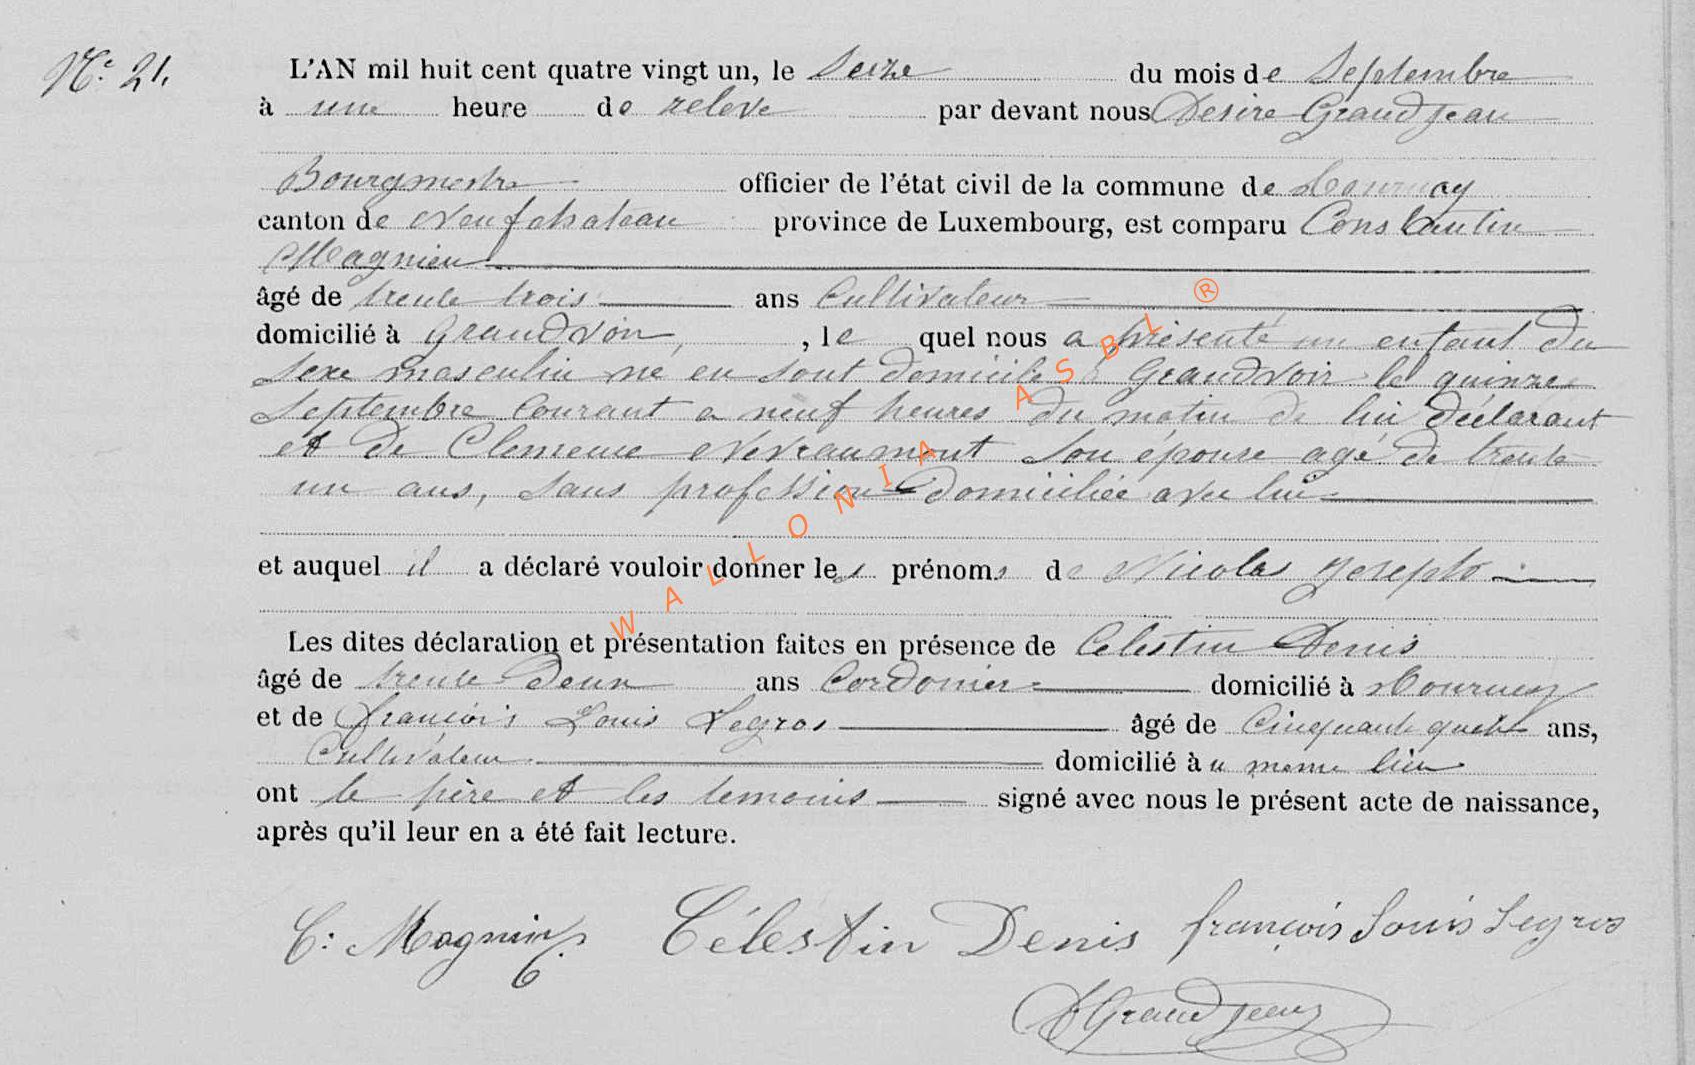 N.° 21.
L'AN mil huit cent quatre vingt un, le Seize du mois de Septembre
à une heure de relevé par devant nous Desire Grandjean
Bourgmestre officier de l'état civil de la commune de Tournay
canton de Neufchateau province de Luxembourg, est comparu Constantin
Magnien
âgé de trente trois ans Cultivateur
domicilié à Grandvoir, , le quel nous a présenté un enfant du
sexe masculin né en sont domicile à Grandvoir le quinze
Septembre Courant a neuf heures du matin de lui déclarant
et de Clemence Nevraumont Son épouse agé de trente
un ans, sans profession domiciliée avec lui
et auquel il a déclaré vouloir donner les prénoms de Nicolas Joseph
Les dites déclaration et présentation faites en présence de Celestin Denis
âgé de trente Deux ans Cordonier domicilié à Tournay
et de François Louis Legros âgé de Cinquante quatre ans,
Cultivateur domicilié àu meme lieu
ont le père et les temoins signé avec nous le présent acte de naissance,
après qu'il leur en a été fait lecture.
C: Magnien Célestin Denis françois Louis Legros
D Grandjean
WALLONIA ASBL ®